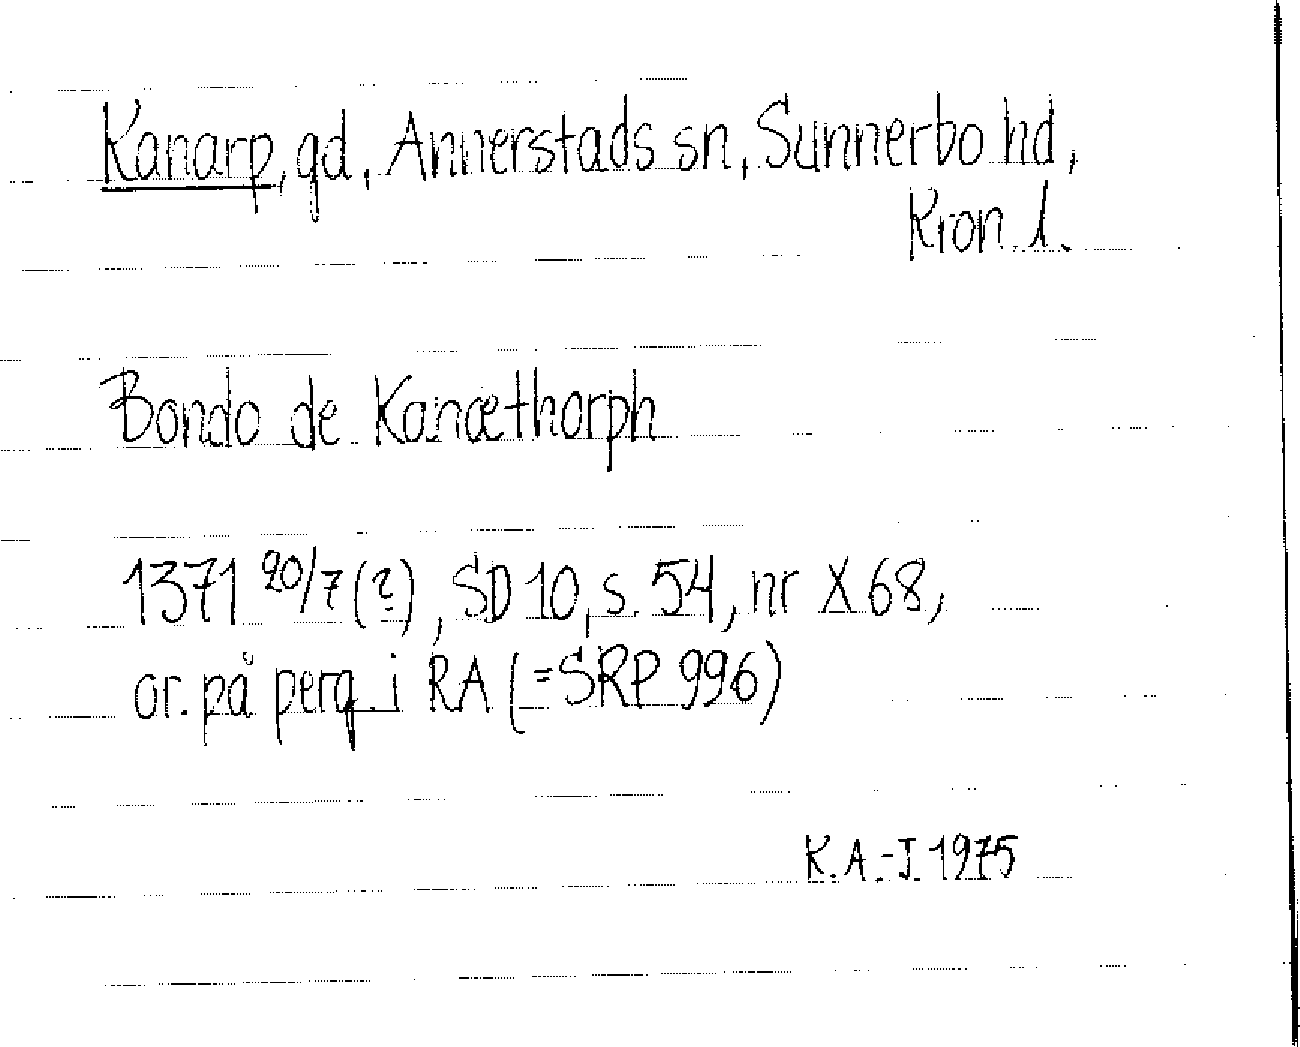 Kanarp, gd, Annerstads sn, Sunnerbo hd,
Kron. l.
Bondo de Kanæthorph
1371 20/7 (?), SD 10, s. 54, nr X 68,
or. på perg. i RA (=SRP 996)
K.A.-J. 1975